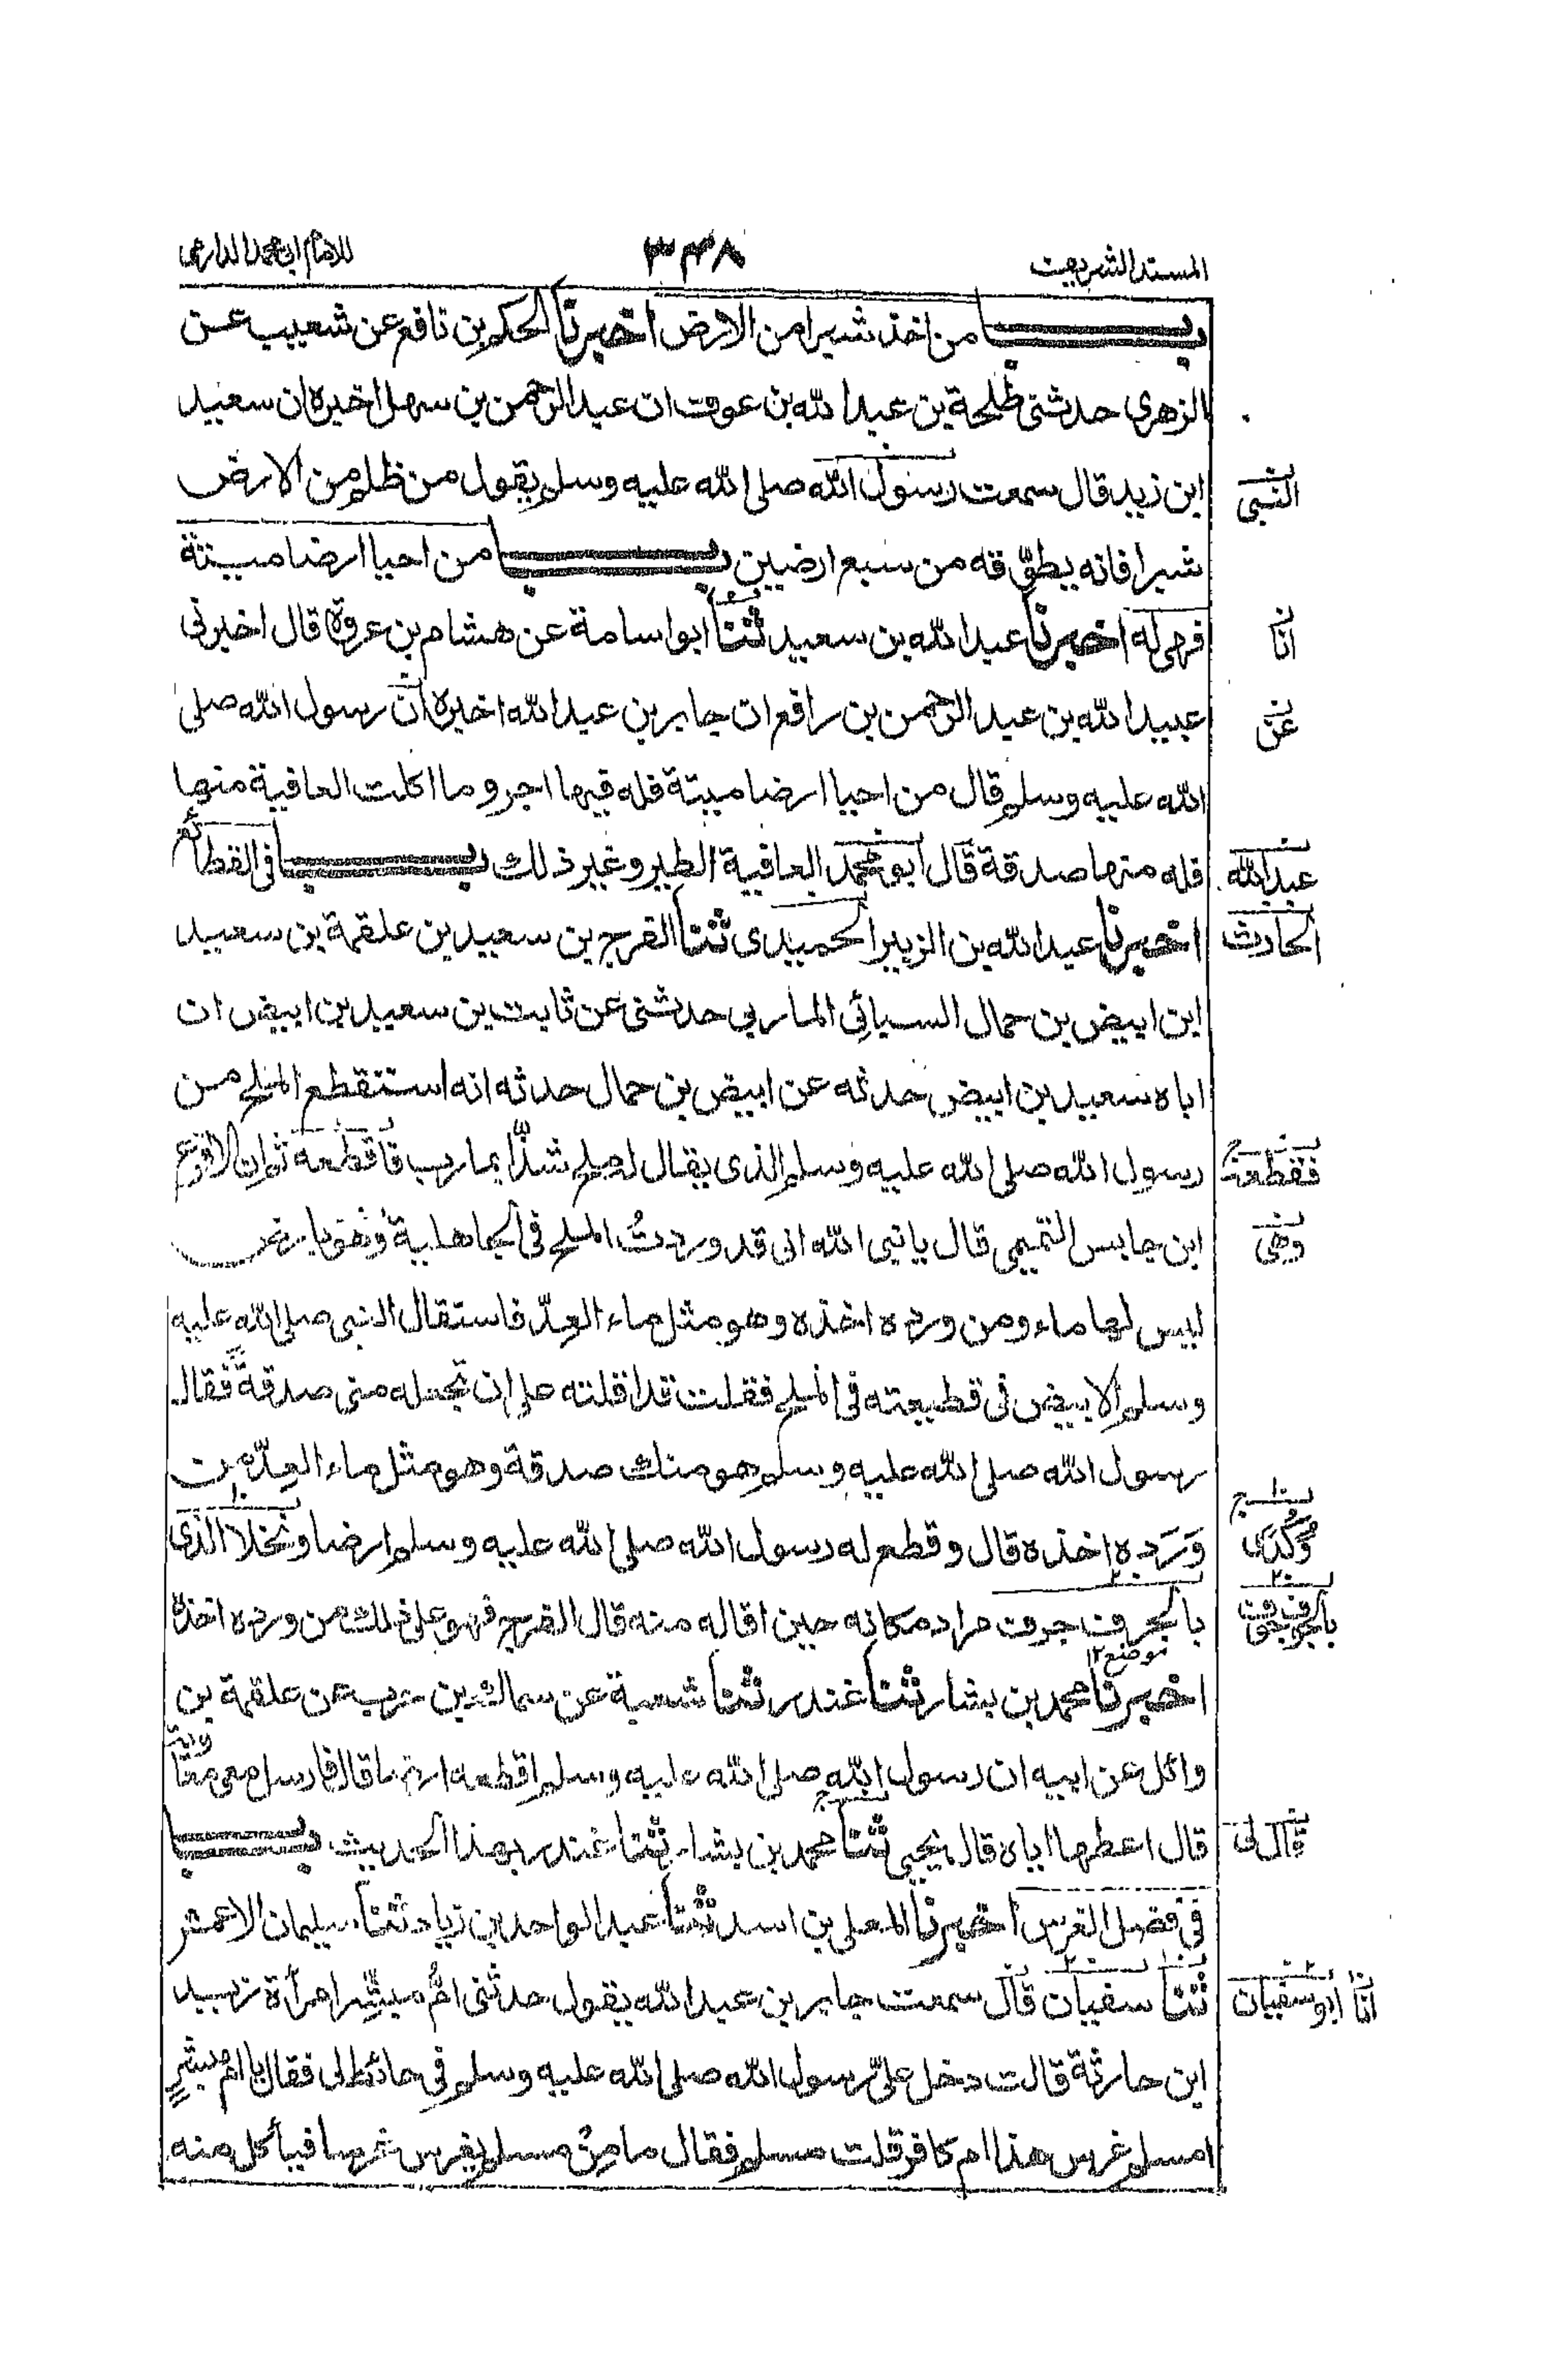 المسند الشريف
٣٤٨
للامام ابي محمد الدارمي
باب من اخذ شبرا من الارض اخبرنا الحكم بن نافع عن شعيب عن
الزهري حدثني طلحة بن عبد الله بن عوف ان عبد الرحمن بن سهل اخبره ان سعيد
ابن زيد قال سمعت رسول الله صلى الله عليه وسلم يقول من ظلم من الارض
النبي
شبرا فانه يطوقه من سبع ارضين باب من احيا ارضا ميتة
فهي له اخبرنا عبد الله بن سعيد ثنا ابو اسامة عن هشام بن عروة قال اخبرني
انا
عبيد الله بن عبد الرحمن بن رافع ان جابر بن عبد الله اخبره ان رسول الله صلى
عن
الله عليه وسلم قال من احيا ارضا ميتة فله فيها اجر وما اكلت العافية منها
فله منها صدقة قال ابو محمد العافية الطير وغير ذلك باب في القطائع
عبد الله
اخبرنا عبد الله بن الزبير الحميدى ثنا الفرج بن سعيد بن علقمة بن سعيد
الحارث
ابن ابيض بن حمال السبائي الماربي حدثني عن ثابت بن سعيد بن ابيض ان
اباه سعيد بن ابيض حدثه عن ابيض بن حمال حدثه انه استقطع الملح من
رسول الله صلى الله عليه وسلم الذى يقال له ملح شذّا بمارب فاقطعه ثم ان الاقرع
فقطعه
ابن حابس التميمي قال يا نبي الله اني قد وردتُ الملح في الجاهلية وهو بارض
وهي
ليس لها ماء ومن ورده اخذه وهو مثل ماء العِدّ فاستقال النبي صلى الله عليه
وسلم الابيض في قطيعته في الملح فقلت قد اقلته على ان تجعله مني صدقةً فقال
رسول الله صلى الله عليه وسلم هو منك صدقة وهو مثل ماء العِدّ من
وَرَده اخذه قال وقطع له رسول الله صلى الله عليه وسلم ارضا ونخلا الذى
بالجرف جرف مراد مكانه حين اقاله منه قال الفرج فهو على ذلك من ورده اخذه
موضع ١٢
اخبرنا محمد بن بشار ثنا غندر ثنا شعبة عن سماك بن حرب عن علقمة بن
وائل عن ابيه ان رسول الله صلى الله عليه وسلم اقطعه ارضا قال فارسل معي معوية
قال اعطها اياه قال يحيى ثنا محمد بن بشار ثنا غندر بهذا الحديث باب
قال لي
في فضل الغرس اخبرنا المعلى بن اسد ثنا عبد الواحد بن زياد ثنا سليمان الاعمش
ثنا سفيان قال سمعت جابر بن عبد الله يقول حدثتني امُّ مبشّر امرأة زيد
انا ابو سفيان
ابن حارثة قالت دخل عليّ رسول الله صلى الله عليه وسلم في حائط لي فقال يا ام مبشرٍ
امسلم غرس هذا ام كافر قلت مسلم فقال ما مِنْ مسلم يغرس غرسا فيأكل منه